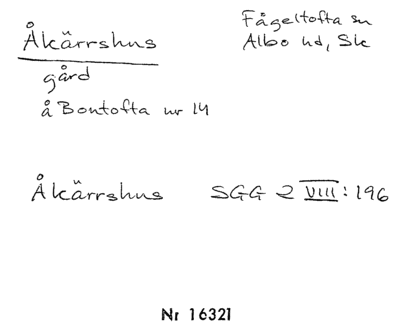 Åkärrshus
Fågeltofta sn
Albo hd, Sk
gård
å Bontofta nr 14
Åkärrshus SGG 2 VIII: 196
Nr 16321